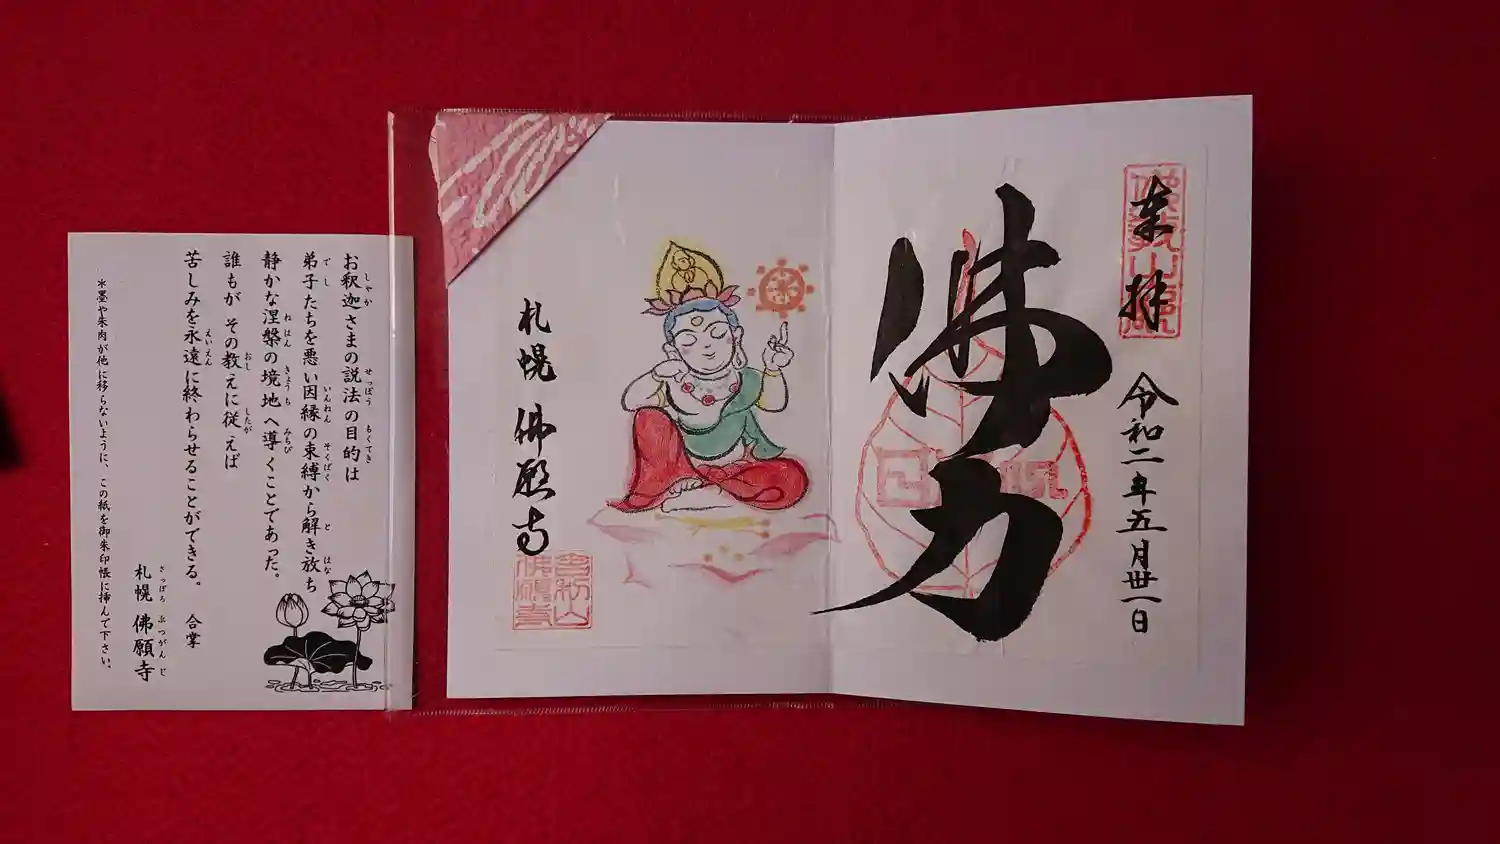 奉拝
令和二年五月丗一日
佛力
札幌 佛願寺
お釈迦さまの説法の目的は
弟子たちを悪い因縁の束縛から解き放ち
静かな涅槃の境地へ導くことであった。
誰もが その教えに従えば
苦しみを永遠に終わらせることができる。 合掌
札幌 佛願寺
＊墨や朱肉が他に移らないように、この紙を御朱印帳に挿んで下さい。